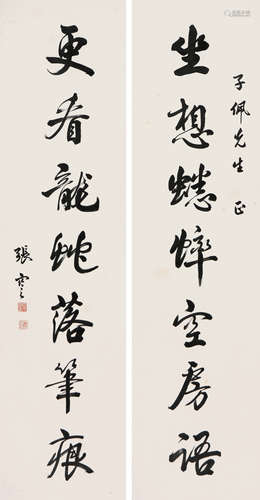 子佩先生 正
坐想蟋蟀空房語
更看龍蛇落筆痕
張